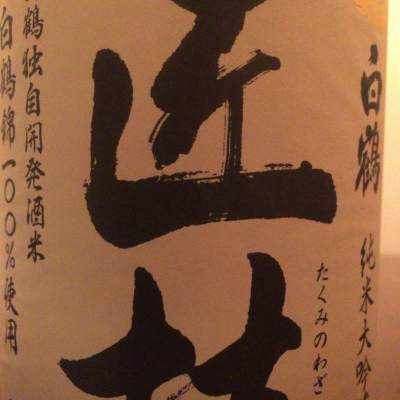 白鶴 純米大吟
たくみのわざ
匠技
鶴独自開発酒米
白鶴錦一〇〇%使用